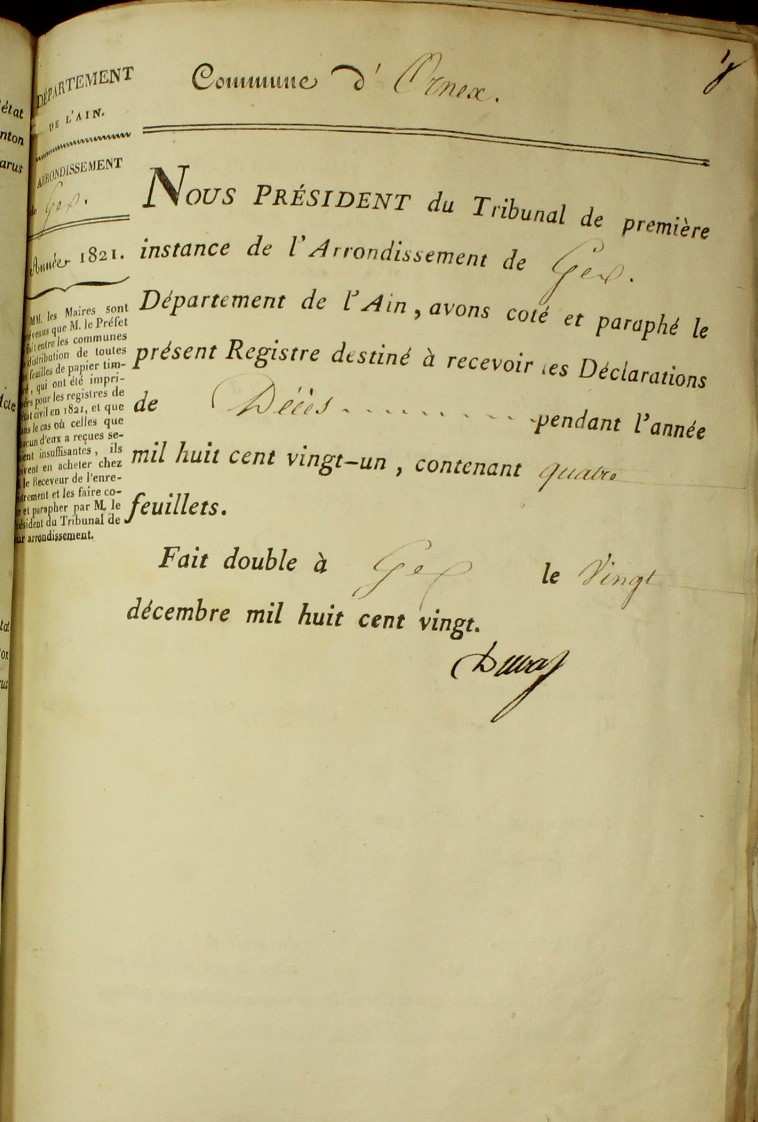 état
nton
arus
DÉPARTEMENT
DE L'AIN.
ARRONDISSEMENT
de Gex.
Année 1821.
MM. les Maires sont
que M. le Préfet
entre les communes
distribution de toutes
feuilles de papier tim-
, qui ont été impri-
pour les registres de
civil en 1821, et que
le cas où celles que
d'eux a reçues se-
insuffisantes, ils
en acheter chez
le Receveur de l'enre-
et les faire co-
et parapher par M. le
du Tribunal de
arrondissement.
Commune d'Ornex.
NOUS PRÉSIDENT du Tribunal de première
instance de l'Arrondissement de Gex.
Département de l'Ain, avons coté et paraphé le
présent Registre destiné à recevoir les Déclarations
de Décès pendant l'année
mil huit cent vingt-un, contenant quatre
feuillets.
Fait double à Gex le Vingt
décembre mil huit cent vingt.